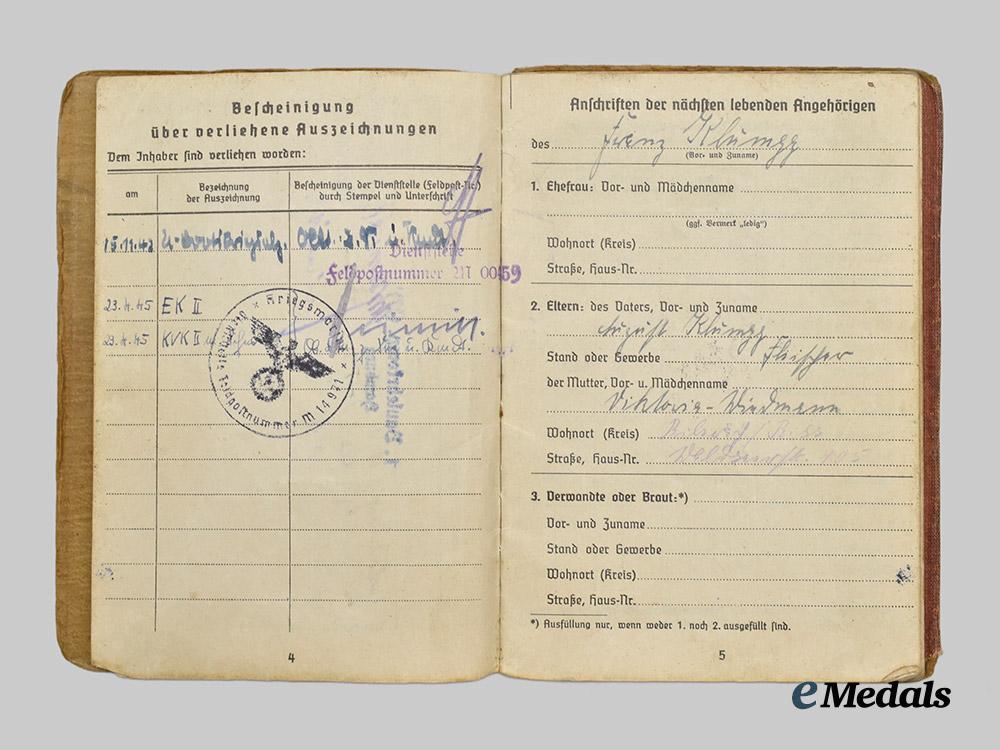 Bescheinigung
über verliehene Auszeichnungen
Dem Inhaber sind verliehen worden:
am
Bezeichnung
der Auszeichnung
Bescheinigung der Dienststelle (Feldpost-Nr.)
durch Stempel und Unterschrift
Dienststelle
Feldpostnummer M 00459
23.4.45 EK II
23.4.45 KVK II
Kriegsmarine
Feldpostnummer M 14971
4
Anschriften der nächsten lebenden Angehörigen
des Franz Klumpp
(Vor- und Zuname)
1. Ehefrau: Vor- und Mädchenname
(ggf. Vermerk „ledig")
Wohnort (Kreis)
Straße, Haus-Nr.
2. Eltern: des Vaters, Vor- und Zuname
August Klumpp
Stand oder Gewerbe Fleischer
der Mutter, Vor- u. Mädchenname
Viktoria - Wiedmann
Wohnort (Kreis)
Straße, Haus-Nr.
3. Verwandte oder Braut:*)
Vor- und Zuname
Stand oder Gewerbe
Wohnort (Kreis)
Straße, Haus-Nr.
*) Ausfüllung nur, wenn weder 1. noch 2. ausgefüllt sind.
5
eMedals